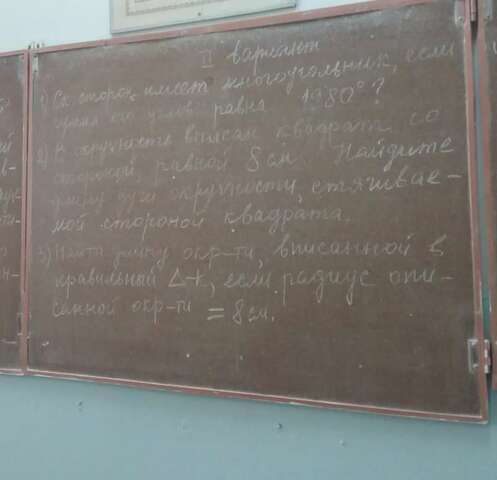 II вариант
1) Ск. сторон имеет многоугольник, если
сумма его углов равна 1980°?
2) В окружность вписан квадрат со
стороной, равной 8 см. Найдите
длину дуги окружности, стягивае-
мой стороной квадрата.
3) Найти длину окр-ти, вписанной в
правильный Δ-к, если радиус опи-
санной окр-ти = 8 см.